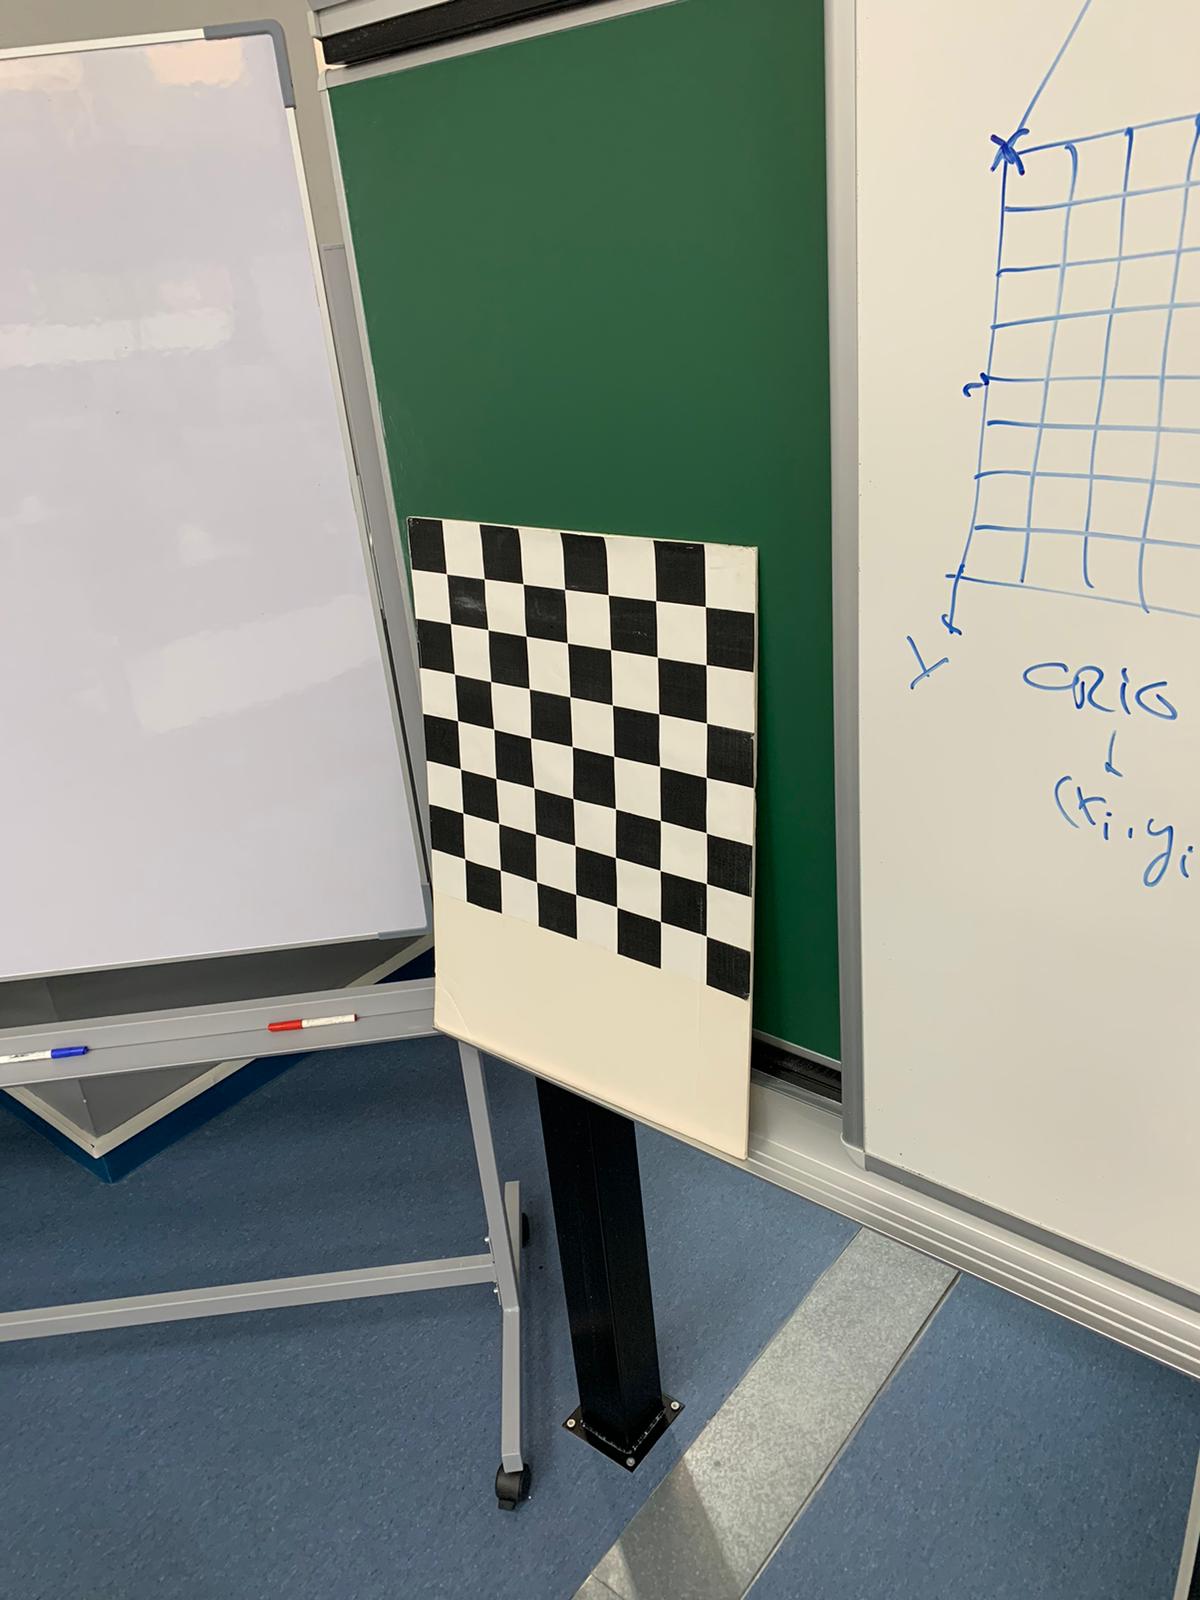 Y
CRIG
(xi, yi